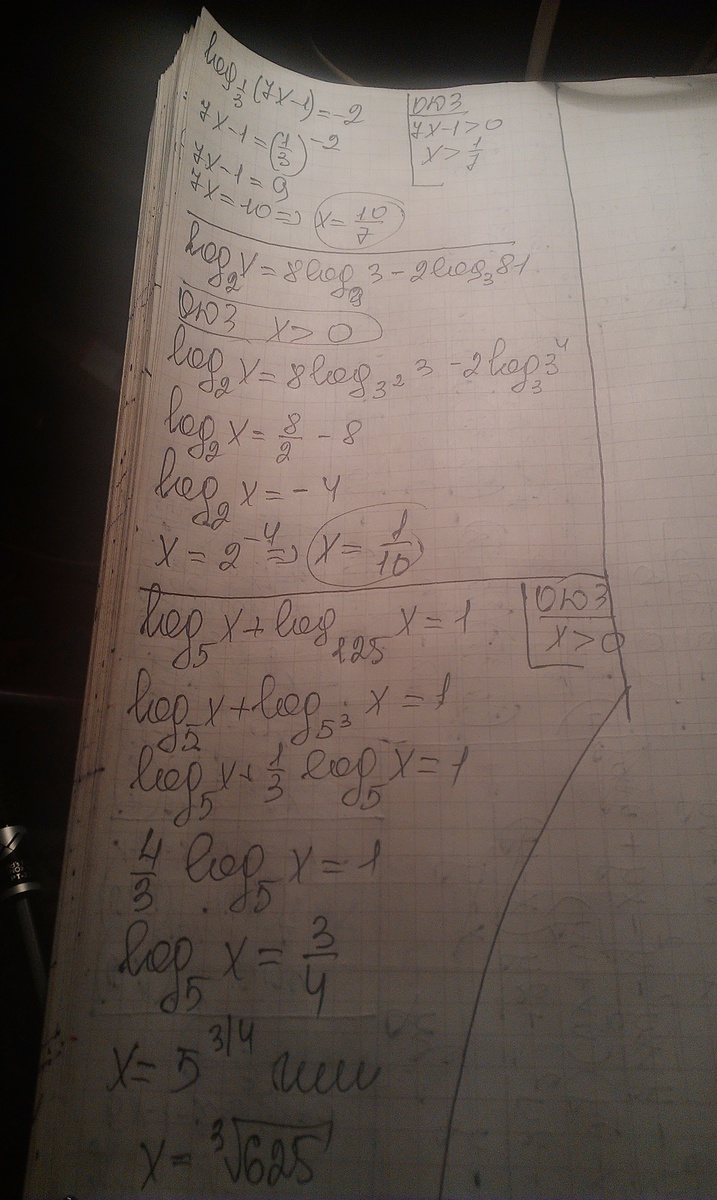 log_{1/3}(7x-1)=-2
7x-1=(1/3)^{-2}
7x-1=9
7x=10 => x=10/7
ОЮЗ
7x-1>0
x>1/7
log_2 x=8log_9 3-2log_3 81
ОЮЗ x>0
log_2 x=8log_{3^2} 3-2log_3 3^4
log_2 x=8/2-8
log_2 x=-4
x=2^{-4} => x=1/10
log_5 x+log_{125} x=1
ОЮЗ
x>0
log_5 x+log_{5^3} x=1
log_5 x+1/3 log_5 x=1
4/3 log_5 x=1
log_5 x=3/4
x=5^{3/4} или
x=∛625